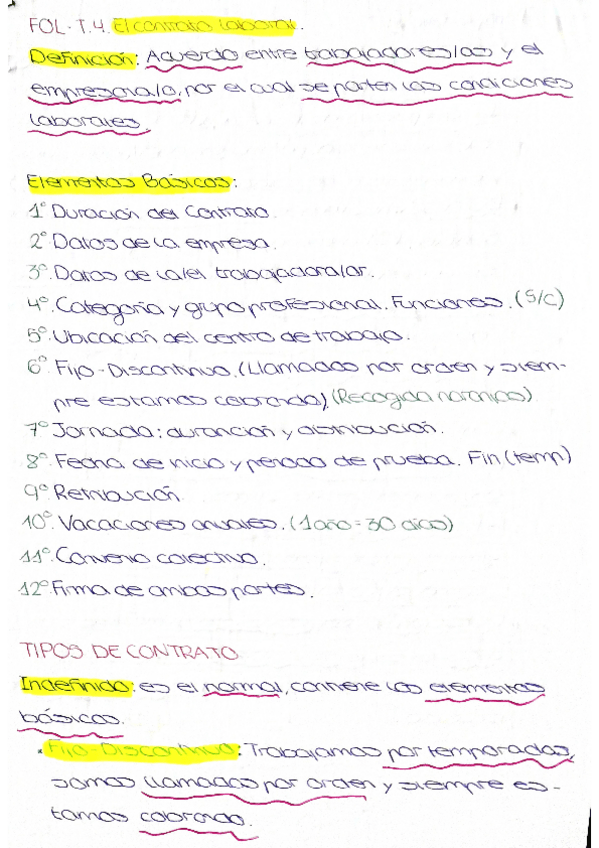 FOL. T.4. El contrato laboral.
Definición: Acuerdo entre trabajadores/as y el
empresaria/o, por el cual se parten las condiciones
laborales.
Elementos Básicos:
1º Duración del Contrato.
2º Datos de la empresa.
3º Datos de la/el trabajadora/or.
4º Categoría y grupo profesional. Funciones. (S/C)
5º Ubicación del centro de trabajo.
6º Fijo-Discontinuo. (Llamados por orden y siem-
pre estamos cobrando). (Recogida naranjas)
7º Jornada: duración y distribución.
8º Fecha de inicio y periodo de prueba. Fin (temp)
9º Retribución.
10º Vacaciones anuales. (1 año = 30 días)
11º Convenio colectivo.
12º Firma de ambas partes.
TIPOS DE CONTRATO
Indefinido: es el normal, contiene los elementos
básicos.
• Fijo-Discontinuo: Trabajamos por temporadas,
somos llamados por orden y siempre es-
tamos cobrando.